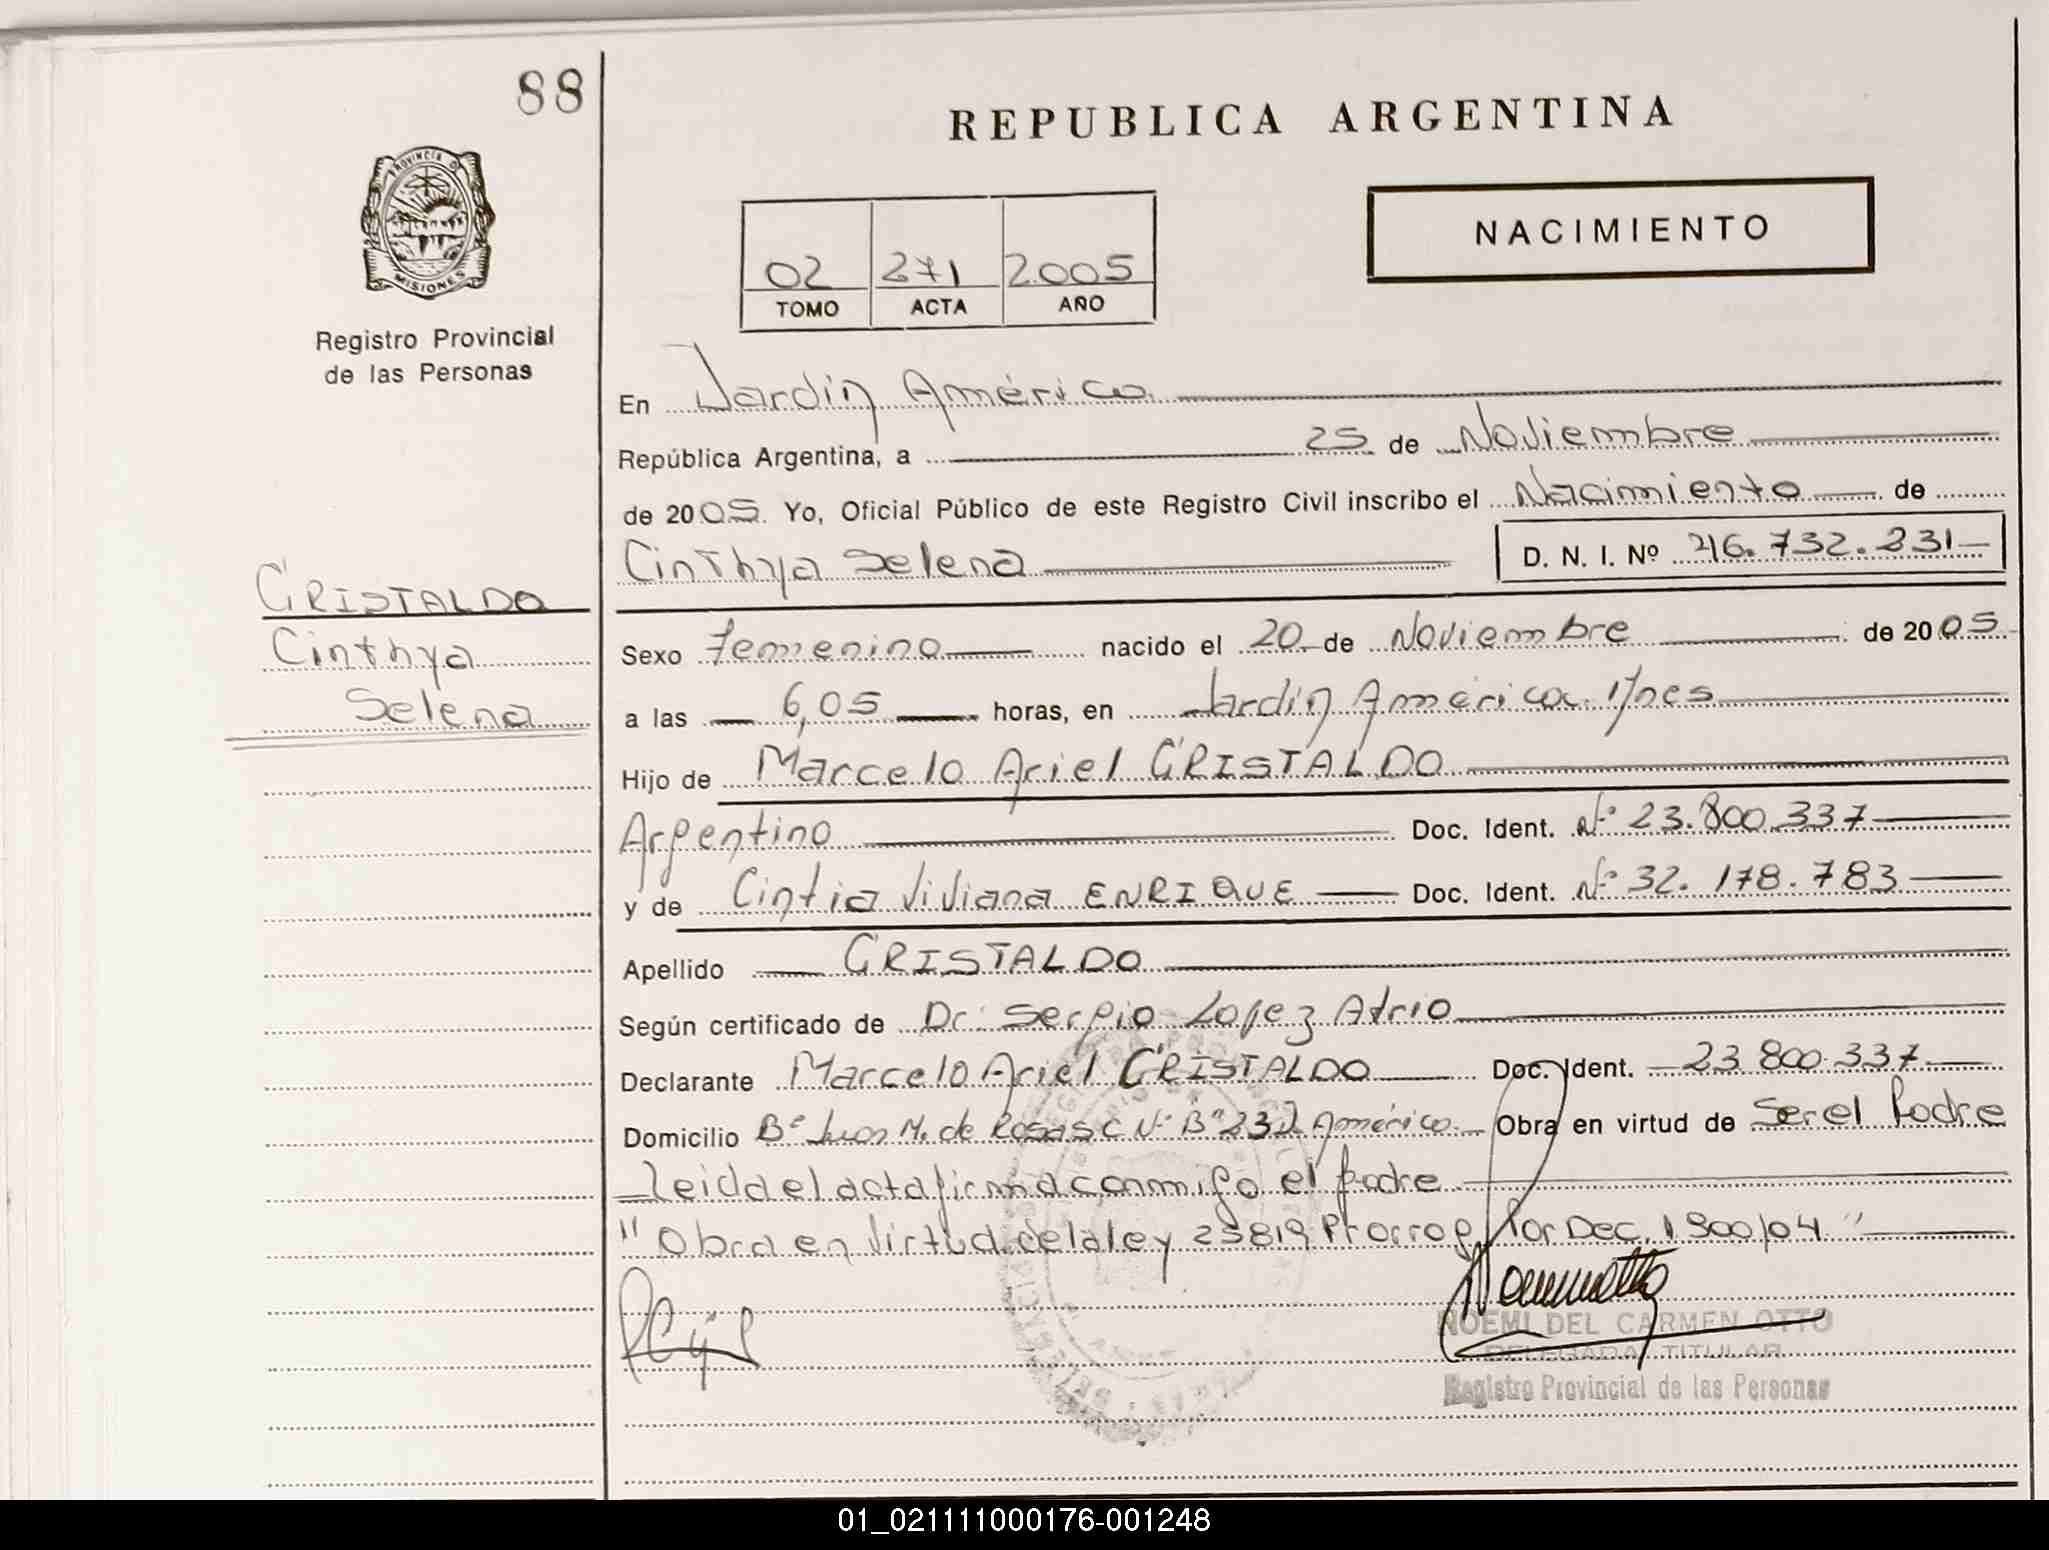 88
REPUBLICA ARGENTINA
PROVINCIA D
MISIONES
NACIMIENTO
02 271 2005
TOMO ACTA AÑO
Registro Provincial
de las Personas
En Jardín América
República Argentina, a 25 de Noviembre
de 2005. Yo, Oficial Público de este Registro Civil inscribo el Nacimiento de
Cinthya Selena D. N. I. Nº 46.732.231
CRISTALDO
Cinthya
Selena
Sexo femenino nacido el 20 de Noviembre de 2005
a las 6,05 horas, en Jardín América. Mnes
Hijo de Marcelo Ariel CRISTALDO
Argentino Doc. Ident. Nº 23.800.337
y de Cintia Viviana ENRIQUE Doc. Ident. Nº 32.178.783
Apellido CRISTALDO
Según certificado de Dr. Sergio Lopez Atrio
Declarante Marcelo Ariel CRISTALDO Doc. Ident. 23.800.337
Domicilio Bº Juan M. de Rosas C Nº Bº 232 América. Obra en virtud de Ser el Padre
Leida el acta firma conmigo el padre
"Obra en virtud de la ley 25819 Prorrog. Por Dec. 1900/04"
NOEMI DEL CARMEN OTTO
DELEGADA TITULAR
Registro Provincial de las Personas
01_021111000176-001248